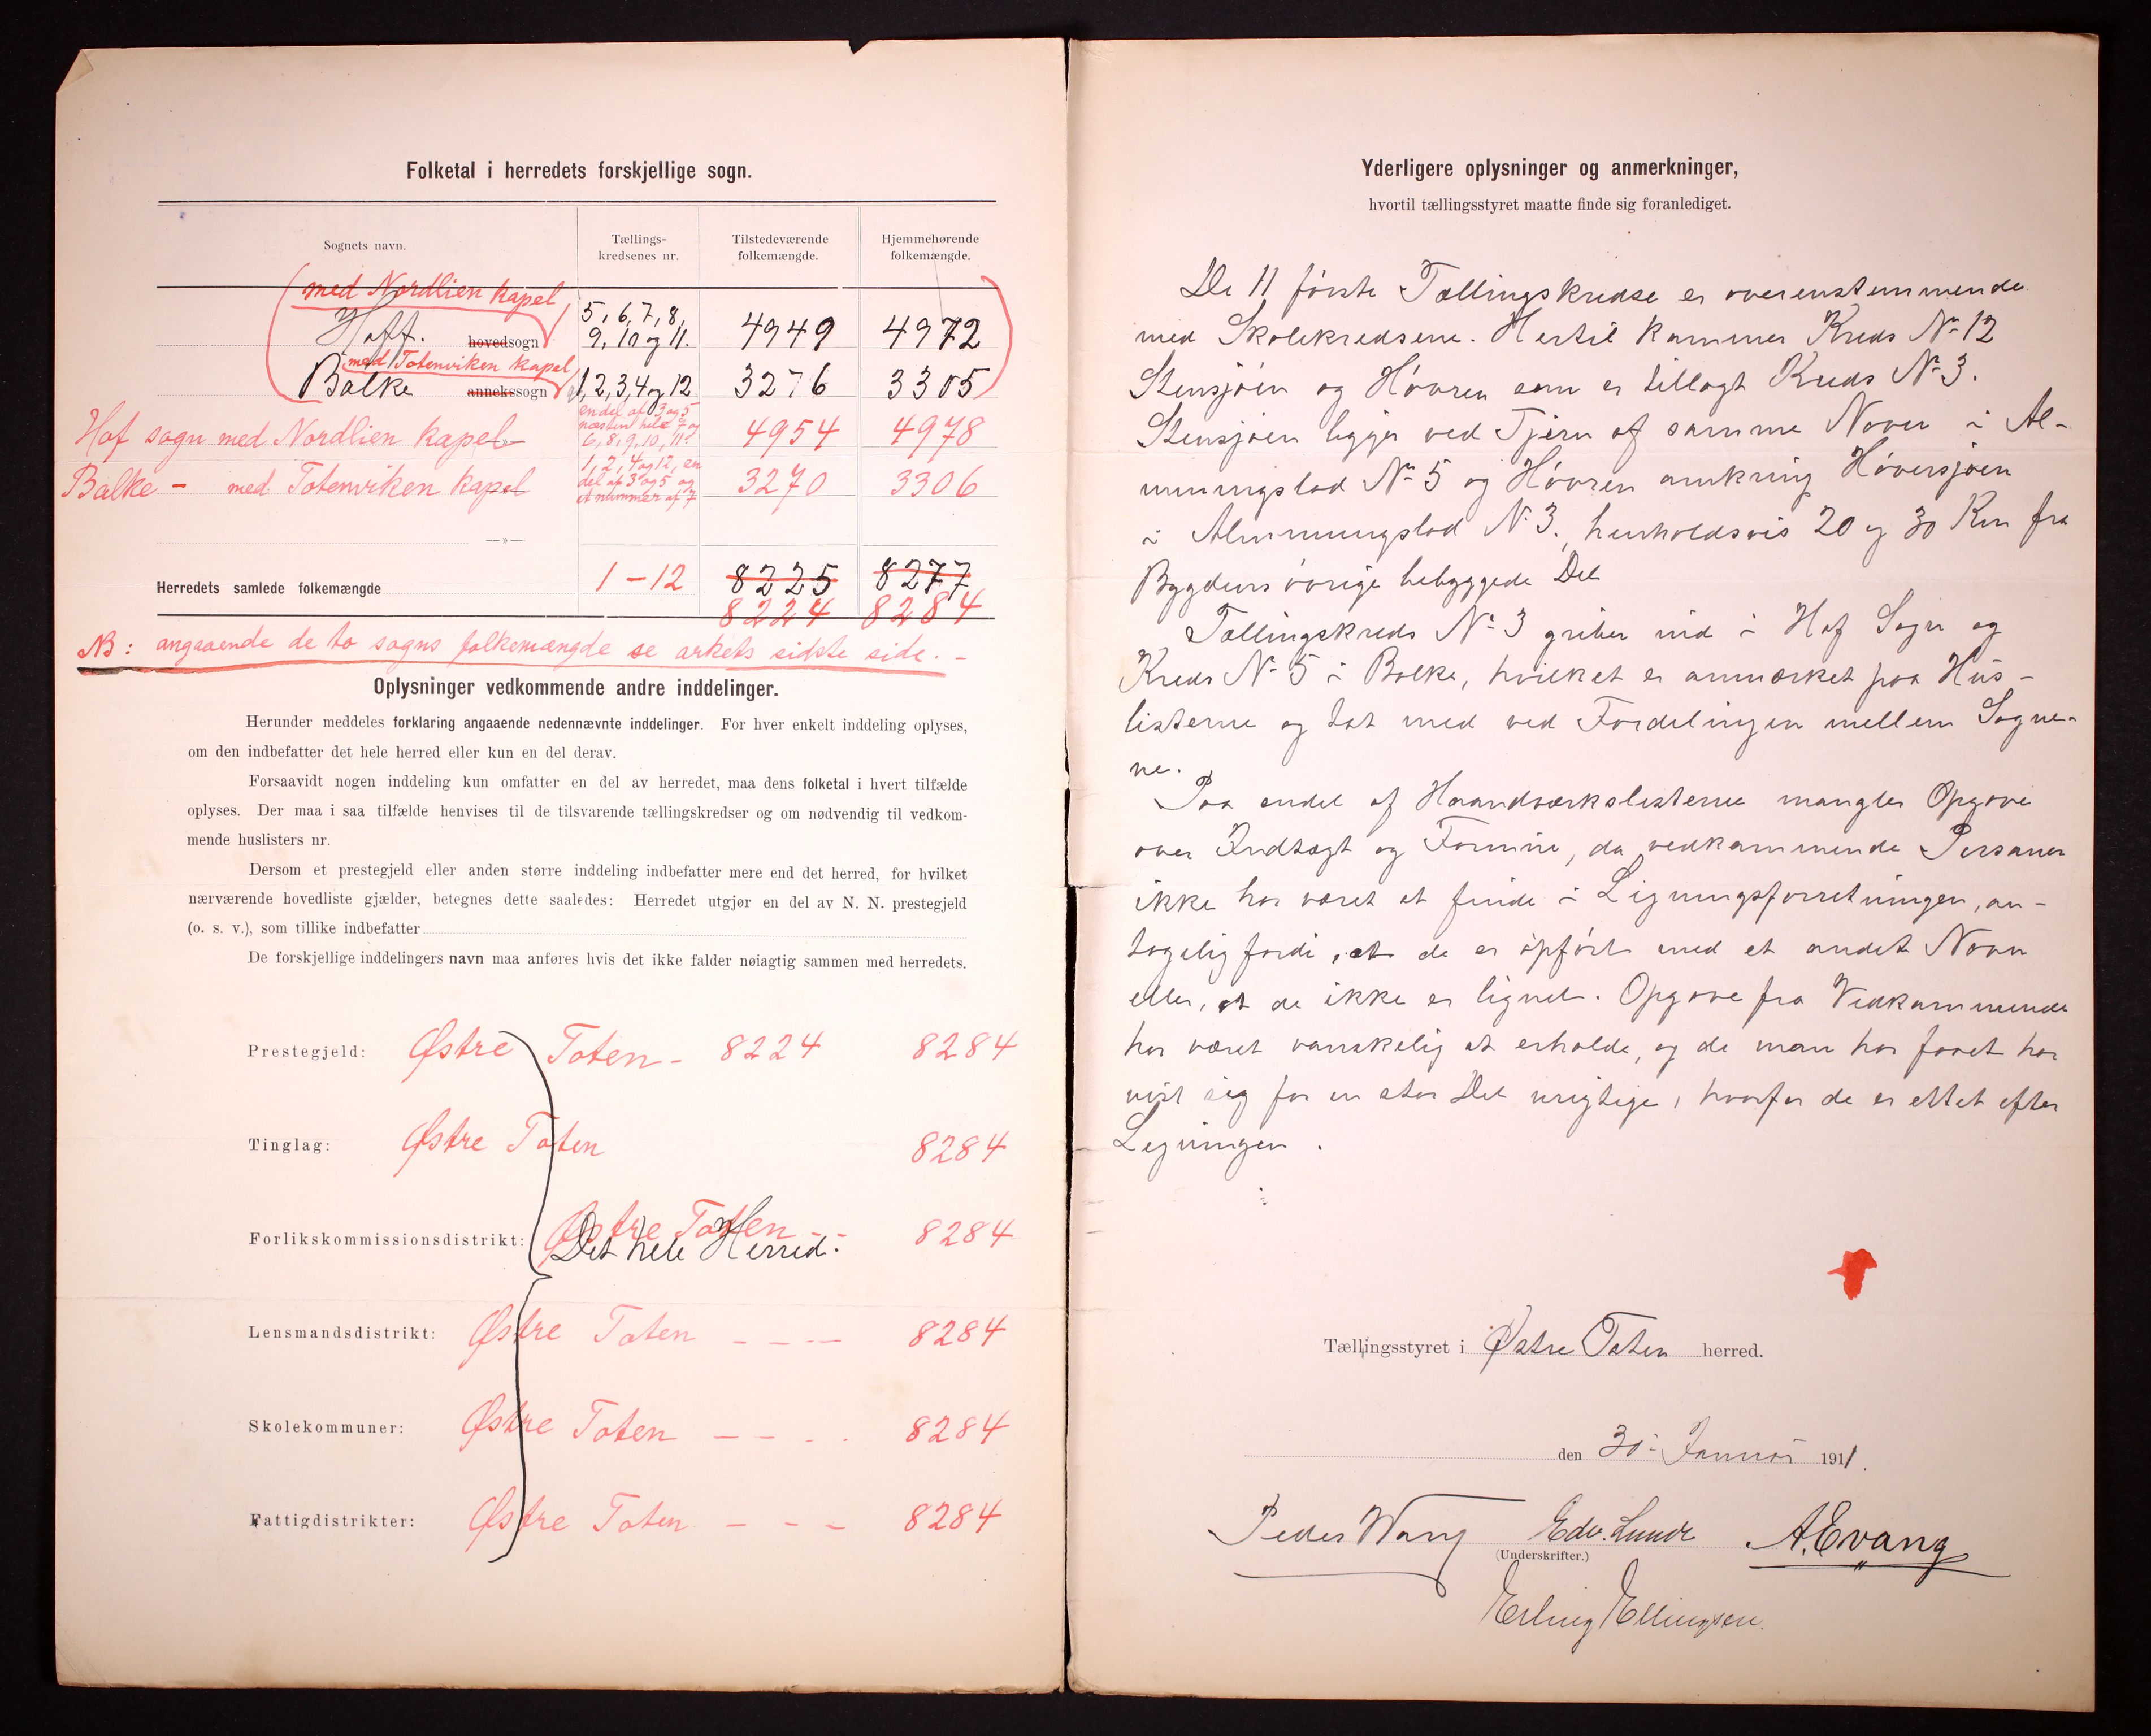 Folketal i herredets forskjellige sogn.
Sognets navn.
Tællings-
kredsenes nr.
Tilstedeværende
folkemængde.
Hjemmehørende
folkemængde.
med Nordlien kapel
Hoff. hovedsogn 5, 6, 7, 8, 9, 10 og 11. 4949 4972
med Totenviken kapel
Balke annekssogn 1, 2, 3, 4 og 12 3276 3305
Hof sogn med Nordlien kapel –»– endel af 3 og 5 næsten hele 7 og 6, 8, 9, 10, 11. 4954 4978
Balke – med Totenviken kapel 1, 2, 4 og 12, en del af 3 og 5 og et nummer af 7 3270 3306
—»—
Herredets samlede folkemængde 1 – 12 8225 8277
8224 8284
NB: angaaende de to sogns folkemængde se arkets sidste side. –
Oplysninger vedkommende andre inddelinger.
Herunder meddeles forklaring angaaende nedennævnte inddelinger. For hver enkelt inddeling oplyses,
om den indbefatter det hele herred eller kun en del derav.
Forsaavidt nogen inddeling kun omfatter en del av herredet, maa dens folketal i hvert tilfælde
oplyses. Der maa i saa tilfælde henvises til de tilsvarende tællingskredser og om nødvendig til vedkom-
mende huslisters nr.
Dersom et prestegjeld eller anden større inddeling indbefatter mere end det herred, for hvilket
nærværende hovedliste gjælder, betegnes dette saaledes: Herredet utgjør en del av N. N. prestegjeld
(o. s. v.), som tillike indbefatter
De forskjellige inddelingers navn maa anføres hvis det ikke falder nøiagtig sammen med herredets.
Prestegjeld: Østre Toten – 8224 8284
Tinglag: Østre Toten 8284
Forlikskommissionsdistrikt: Østre Toten – – 8284
Det hele Herred.
Lensmandsdistrikt: Østre Toten – – – 8284
Skolekommuner: Østre Toten – – . . 8284
Fattigdistrikter: Østre Toten – – – 8284
Yderligere oplysninger og anmerkninger,
hvortil tællingsstyret maatte finde sig foranlediget.
De 11 første Tællingskredse er overenstemmende
med Skolekredsene. Hertil kommer Kreds No 12
Stensjøen og Høvren som er tillagt Kreds No 3.
Stensjøen ligger ved Tjern af samme Navn i Al-
mningslod No 5 og Høvren omkring Høversjøen
i Almningslod No 3., henholdsvis 20 og 30 Km fra
Bygdens øvrige bebyggede Del
Tællingskreds No 3 griber ind i Hof Sogn og
Kreds No 5 i Balke, hvilket er anmærket paa Hus-
listerne og tat med ved Fordelingen mellem Sogne-
ne.
Paa endel af Haandværkslisterne mangler Opgave
over Indtægt og Formue, da vedkommende Personer
ikke har været at finde i Ligningsforretningen, an-
tagelig fordi, at de er opført med et andet Navn
eller, at de ikke er lignet. Opgave fra Vedkommende
har været vanskelig at erholde, og de man har faaet har
vist sig for en stor Del urigtige, hvorfor de er ettet efter
Ligningen.
Tællingsstyret i Østre Toten herred.
den 30. Januar 1911.
Peder Wang Edv. Lunde A. Evang
(Underskrifter.)
Erling Ellingsen.